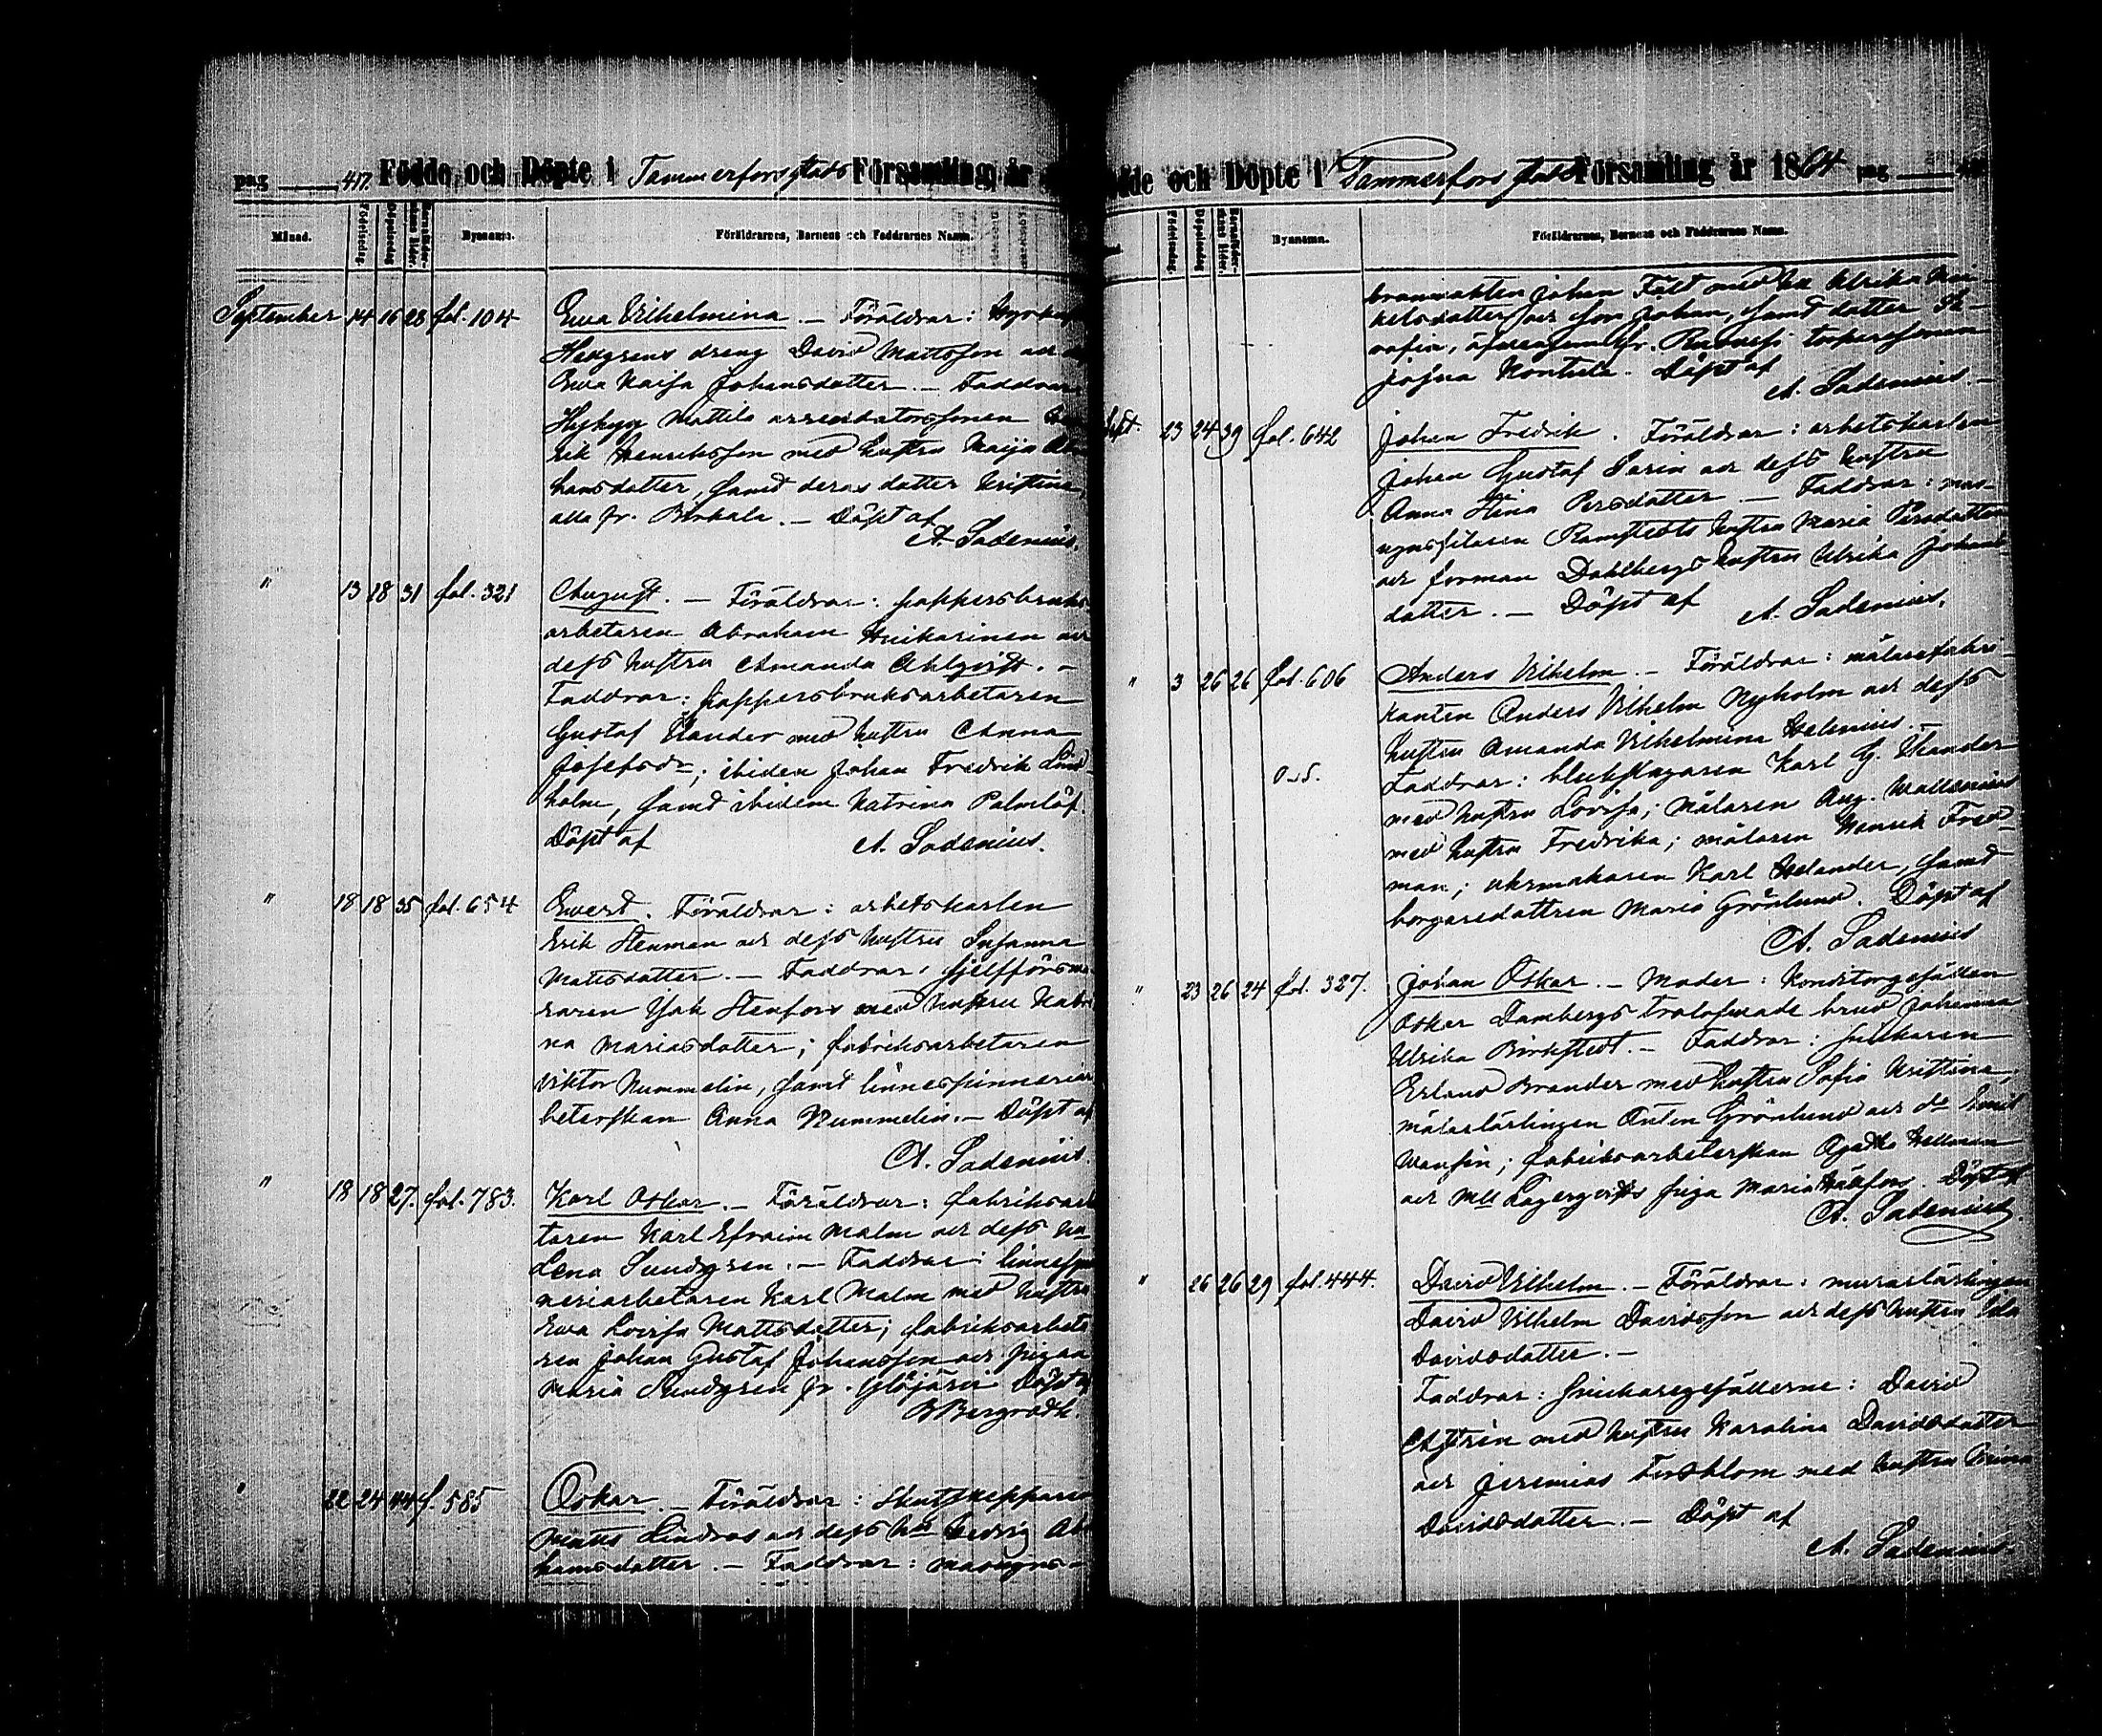 pag 417. Födde och Döpte i Tammerfors stads Församling år
Månad. Födelsedag. Döpelsedag Barnaföderskans ålder. Bynamn. Föräldrarnes, Barnens och Faddrarnes Namn.
September 14 16 28 fol. 104 Ewa Vilhelmina. – Föräldrar:
Hedgrens dreng David Mattsson och
Ewa Kaisa Johansdotter. – Faddrar
Hyhyy Mattila arrendatorssonen
rik Henriksson med hustru Maija
hansdotter, samt deras dotter Kristina,
alla fr. Birkala. – Döpt af
A. Sadenius.
" 13 18 31 fol. 321 August. – Föräldrar: pappersbruks
arbetaren Abraham Huikarinen och
dess hustru Amanda Ahlqvist. –
Faddrar: pappersbruksarbetaren
Gustaf med hustru Anna
Josefsdr; ibiden Johan Fredrik Lind-
holm, samt ibidem Katrina Palmlöf.
Döpt af A. Sadenius.
" 18 18 35 fol. 654 Evert. Föräldrar: arbetskarlen
Erik Stenman och dess hustru Susanna
Mattsdotter. – Faddrar: sjelfförsör
raren Isak Stenfors med hustru Katri
na Mariasdotter; fabriksarbetaren
Viktor Nummelin, samt linnespinneriar
beterskan Anna Nummelin. – Döpt af
A. Sadenius.
" 18 18 27. fol. 783. Karl Oskar. – Föräldrar: fabriksarb
taren Karl Efraim Malm och dess hu
Lena Sundgren. – Faddrar: linnespin
neriarbetaren Karl Malm med hustru
Ewa Lovisa Mattsdotter; fabriksarbeta
ren Johan Gustaf Johansson och pigan
Maria Sundgren fr. Ylöjärvi Döpt af
Bergroth.
" 22 24 44 f. 585 Oskar. – Föräldrar: Skutskepparen
Matts Lindroos och dess hu Hedvig Abr
hamsdotter. – Faddrar: masugns-
Födde och Döpte i Tammerfors stads Församling år 1864 pag
Födelsedag. Döpelsedag. Barnaföderskans ålder. Bynamn. Föräldrarnes, Barnens och Faddrarnes Namn.
Johan Fält med hu Ulrika Mi-
kelsdotter och son Johan, samt dotter Se-
rafia, äfvensom fr. torparesonen
Kontula. Döpt af
A. Sadenius. –
Sept. 23 24 39 fol. 642 Johan Fredrik. Föräldrar: arbetskarlen
Johan Gustaf Sarin och dess hustru
Anna Stina Persdotter. – Faddrar: mas-
ugns Ramstedts hustru Maria Persdotter
och forman Dahlbergs hustru Ulrika Johans-
dotter. – Döpt af A. Sadenius.
" 3 26 26 fol. 606 Anders Vilhelm. – Föräldrar: målarefabri-
kanten Anders Vilhelm Nyholm och dess
hustru Amanda Vilhelmina Helenius. –
Faddrar: bleckslagaren Karl G. Thander
med hustru Lovisa; målaren Aug. Wallenius
med hustru Fredrika; målaren Henrik Fred-
man; uhrmakaren Karl Helander, samt
borgaredottren Maria Grönlund. Döpt af
A. Sadenius
" 23 26 24 fol. 327. Johan Oskar. – Moder: Konditorgesällen
Oskar Dambergs trolofvade brud Johanna
Ulrika Birkstedt. – Faddrar: snickaren
Erland Brander med hustru Sofia Kristina;
målarlärlingen Anton Grönlund och do Emil
fabriksarbeterskan Agatha Hellman
och Mll Lagerqvists piga Maria Döpt af
A. Sadenius.
" 26 26 29 fol. 444. David Vilhelm. – Föräldrar: murarlärlingen
David Vilhelm Davidsson och dess hustru Ida
Davidsdotter. –
Faddrar: snickaregesällerne: David
med hustru Karolina Davidsdotter
och Jeremias Forsblom med hustru
Davidsdotter. – Döpt af
A. Sadenius.